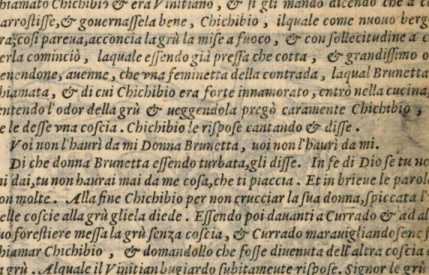 hiamato Chichibio & era Vinitiano, & si gli mandò dicendo che a c
arrostisse, & gouernassela bene, Chichibio, ilquale come nuouo berg
ra, cosi pareua, acconcia la grù la mise a fuoco, & con sollecitudine a c
erla cominciò, laquale essendo già pressa che cotta, & grandissimo o
enendone, auenne, che vna feminetta della contrada, laqual Brunetta
hiamata, & di cui Chichibio era forte innamorato, entrò nella cucina,
entendo l'odor della grù & ueggendola pregò caramente Chichibio,
e le desse vna coscia. Chichibio le rispose cantando & disse.
Voi non l'haurì da mi Donna Brunetta, uoi non l'haurì da mi.
Di che donna Brunetta essendo turbata, gli disse. In fe di Dio se tu no
i dai, tu non haurai mai da me cosa, che ti piaccia. Et in brieue le parol
on molte. Alla fine Chichibio per non crucciar la sua donna, spiccata l'
elle coscie alla grù gliela diede. Essendo poi dauanti a Currado & ad al
uo forestiere messa la grù senza coscia, & Currado marauigliandosene f
hiamar Chichibio, & domandollo che fosse diuenuta dell'altra coscia
a grù. Alquale il Vinitian bugiardo subitamente rispose. Signor le grù